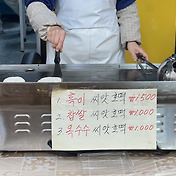 1. 흑미 씨앗호떡 ₩1,500
2. 찹쌀 씨앗호떡 ₩1,000
3. 옥수수 씨앗호떡 ₩1,000